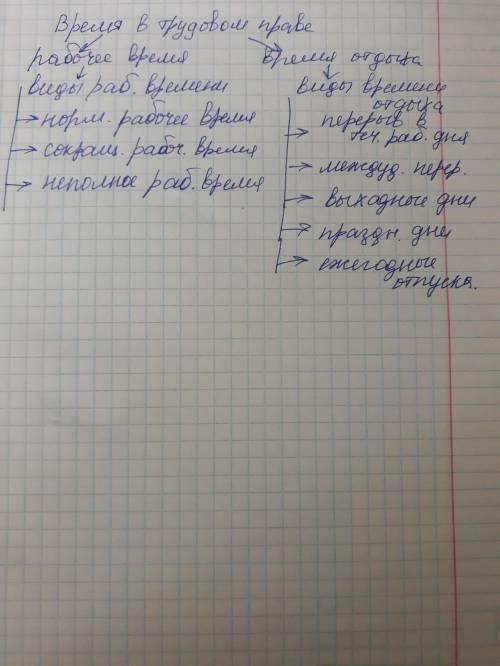 Время в трудовом праве
рабочее время
время отдыха
виды раб. времени
виды времени
отдыха
→ норм. рабочее время
→ сокращ. рабоч. время
→ неполное раб. время
перерыв в
→ теч. раб. дня
→ междуд. перер.
→ выходные дни
→ праздн. дни
→ ежегодные
отпуска.